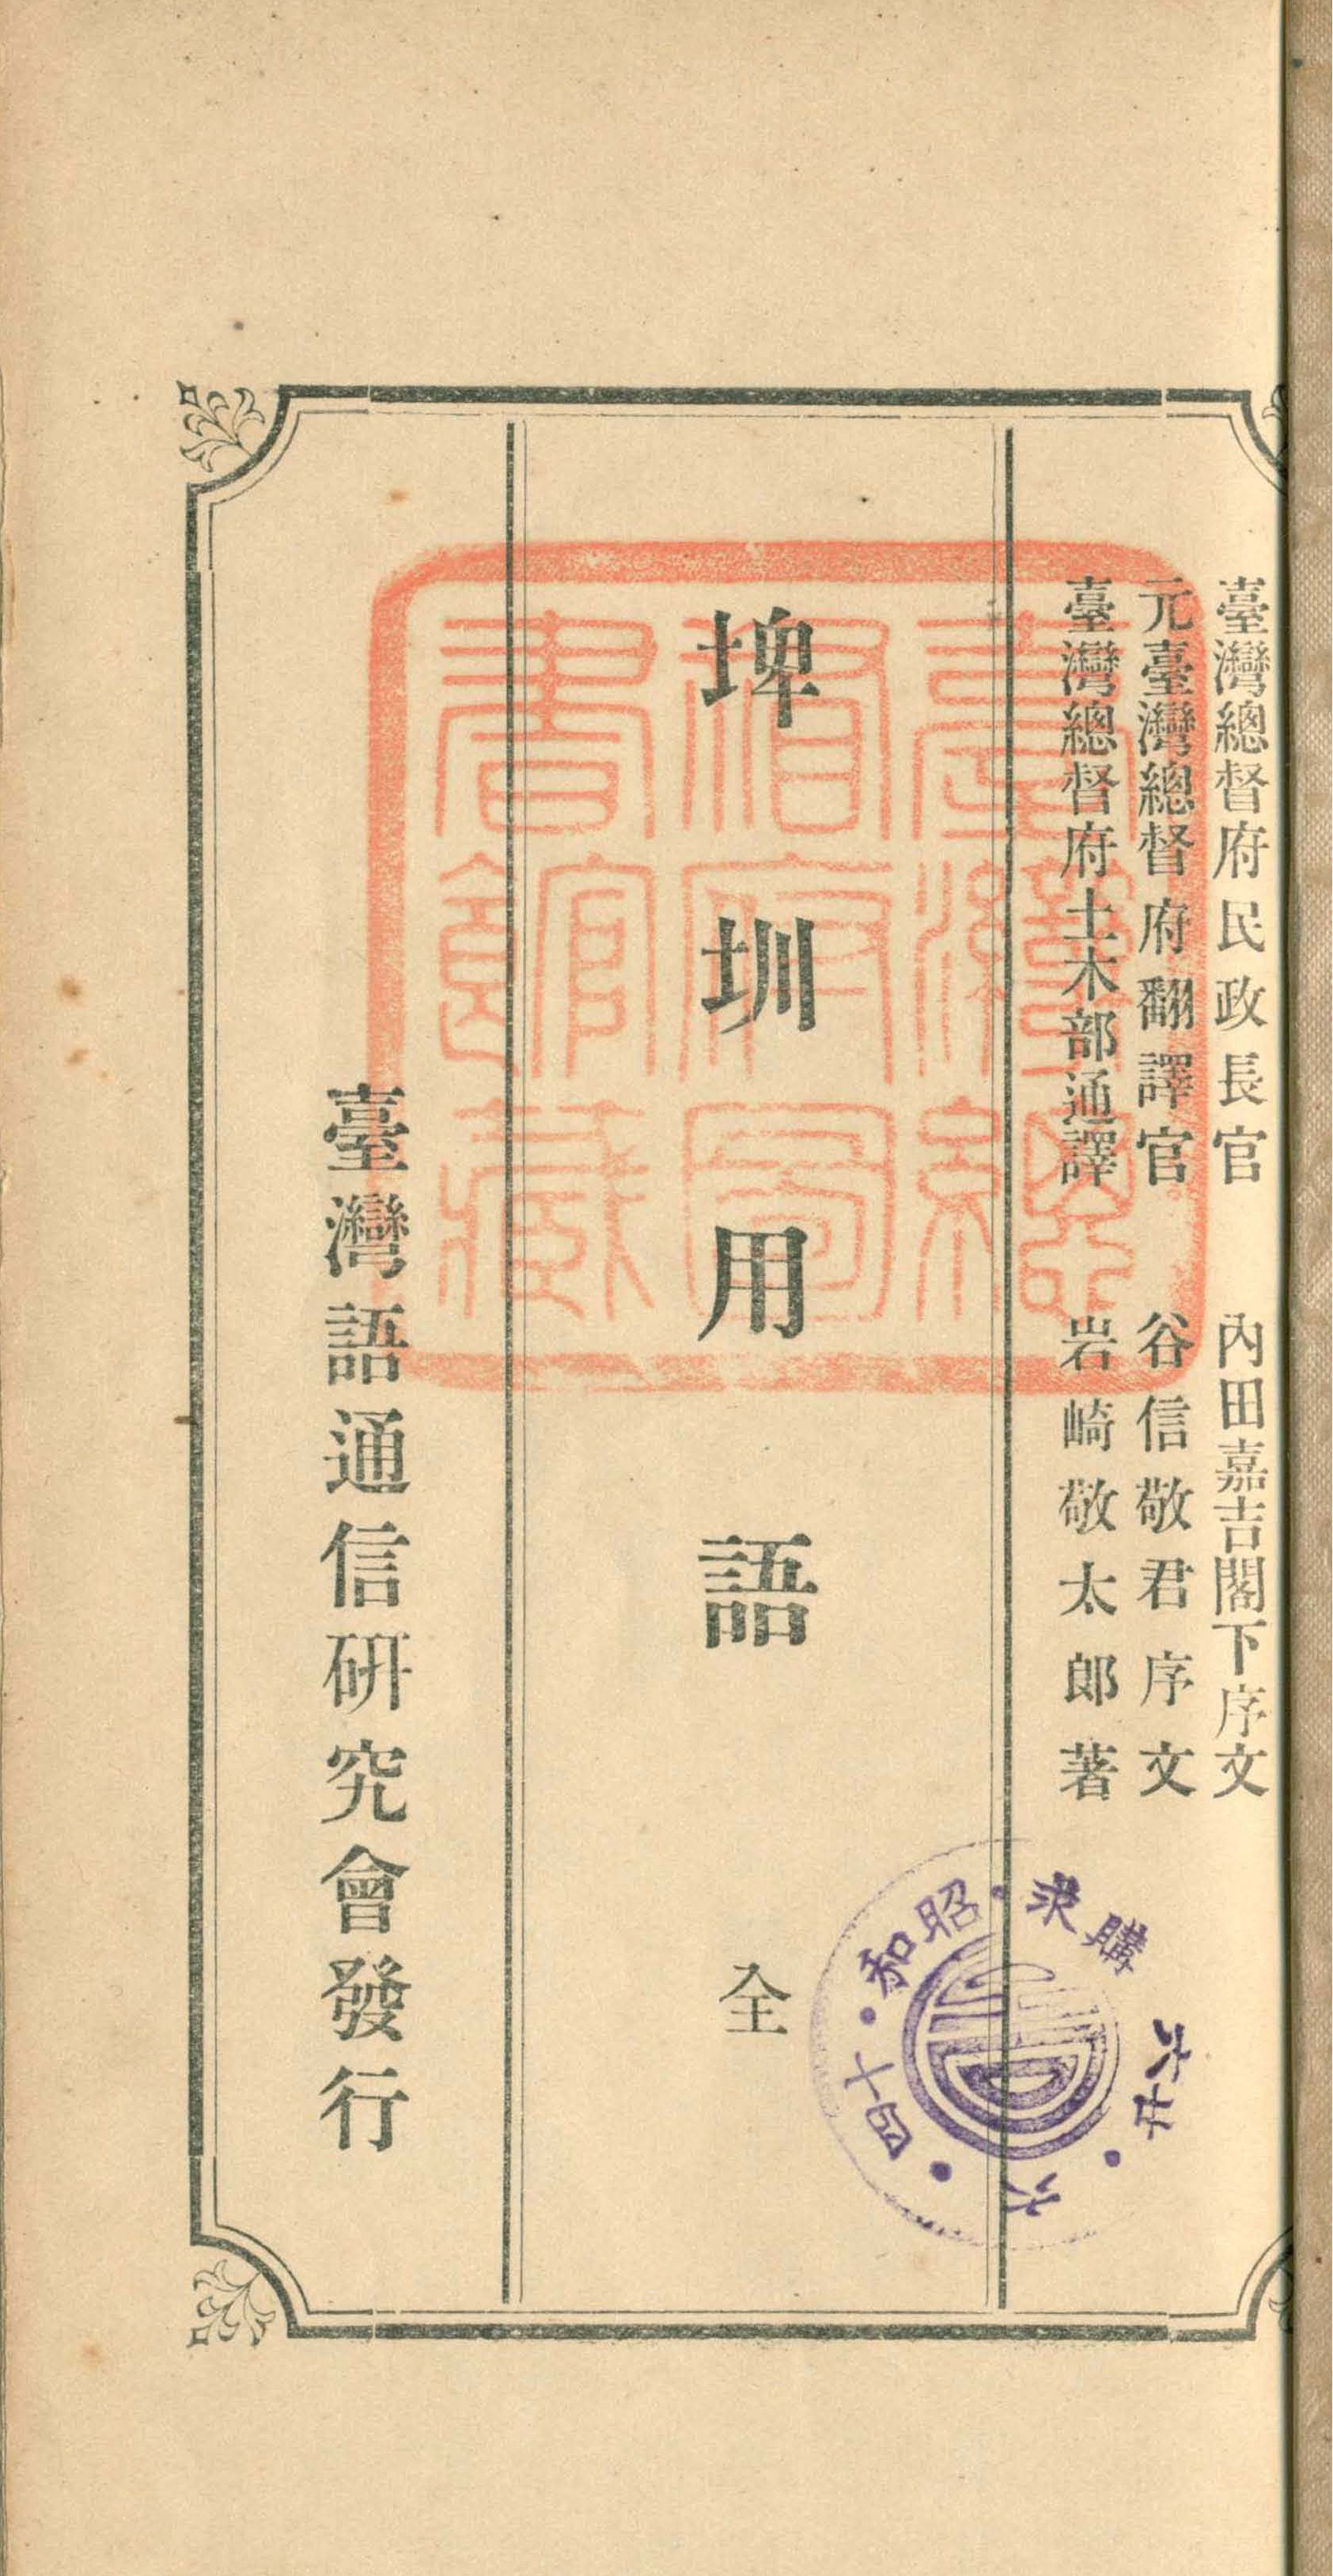 臺灣總督府民政長官 內田嘉吉閣下序文
元臺灣總督府翻譯官 谷信敬君序文
臺灣總督府土木部通譯 岩崎敬太郎著
埤圳用語 全
臺灣語通信研究會發行
臺灣總
督府圖
書館藏
昭和・十四・六・廿六
購求